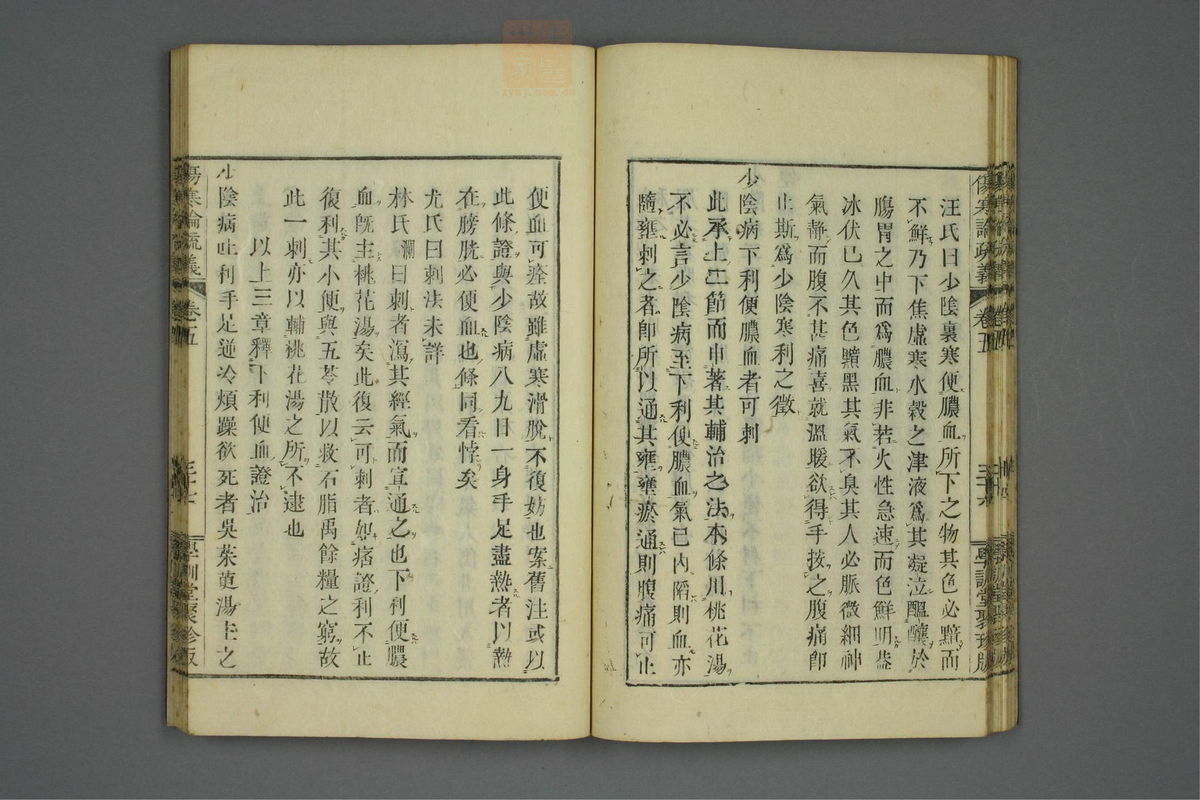 傷寒論疏義 卷五 三十六 學訓堂聚珍版
汪氏曰少陰裏寒便膿血所下之物其色必黯而
不鮮乃下焦虛寒水穀之津液爲其凝泣醞釀於
腸胃之中而爲膿血非若火性急速而色鮮明蓋
冰伏已久其色黯黑其氣不臭其人必脈微細神
氣靜而腹不甚痛喜就溫暖欲得手按之腹痛卽
止斯爲少陰寒利之徵
少陰病下利便膿血者可刺
此承上二節而申著其輔治之法本條用桃花湯
不必言少陰病至下利便膿血氣已內陷則血亦
隨壅刺之者卽所以通其壅壅瘀通則腹痛可止
便血可痊故雖虛寒滑脫不復妨也案舊注或以
此條證與少陰病八九日一身手足盡熱者以熱
在膀胱必便血也條同看悖矣
尤氏曰刺法未詳
林氏瀾曰刺者瀉其經氣而宣通之也下利便膿
血旣主桃花湯矣此復云可刺者如痞證利不止
復利其小便與五苓散以救石脂禹餘糧之窮故
此一刺亦以輔桃花湯之所不逮也
以上三章釋下利便血證治
少陰病吐利手足逆冷煩躁欲死者吳茱萸湯主之
傷寒論疏義 卷五 三十七 學訓堂聚珍版